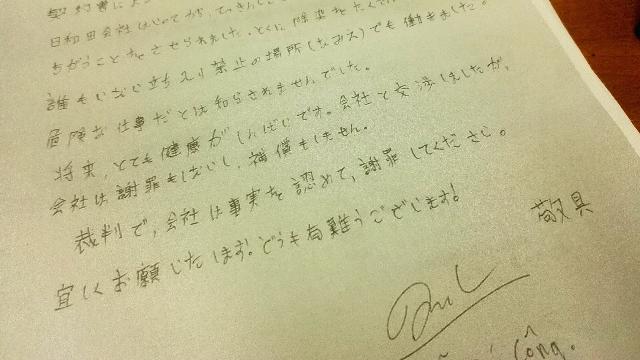 契約書に
日和田会社はじめてから、てっきんし
ちがうことをさせられました。とくに除染をたくさん
誰もいない立ち入り禁止の場所(なみえ)でも働きました。
危険な仕事だとは知らされませんでした。
将来、とても健康がしんぱいです。会社と交渉しましたが、
会社は謝罪もしないし補償もしません。
裁判で、会社は事実を認めて、謝罪してください。
宜しくお願いたします!どうも有難うございます!
敬具
Công.